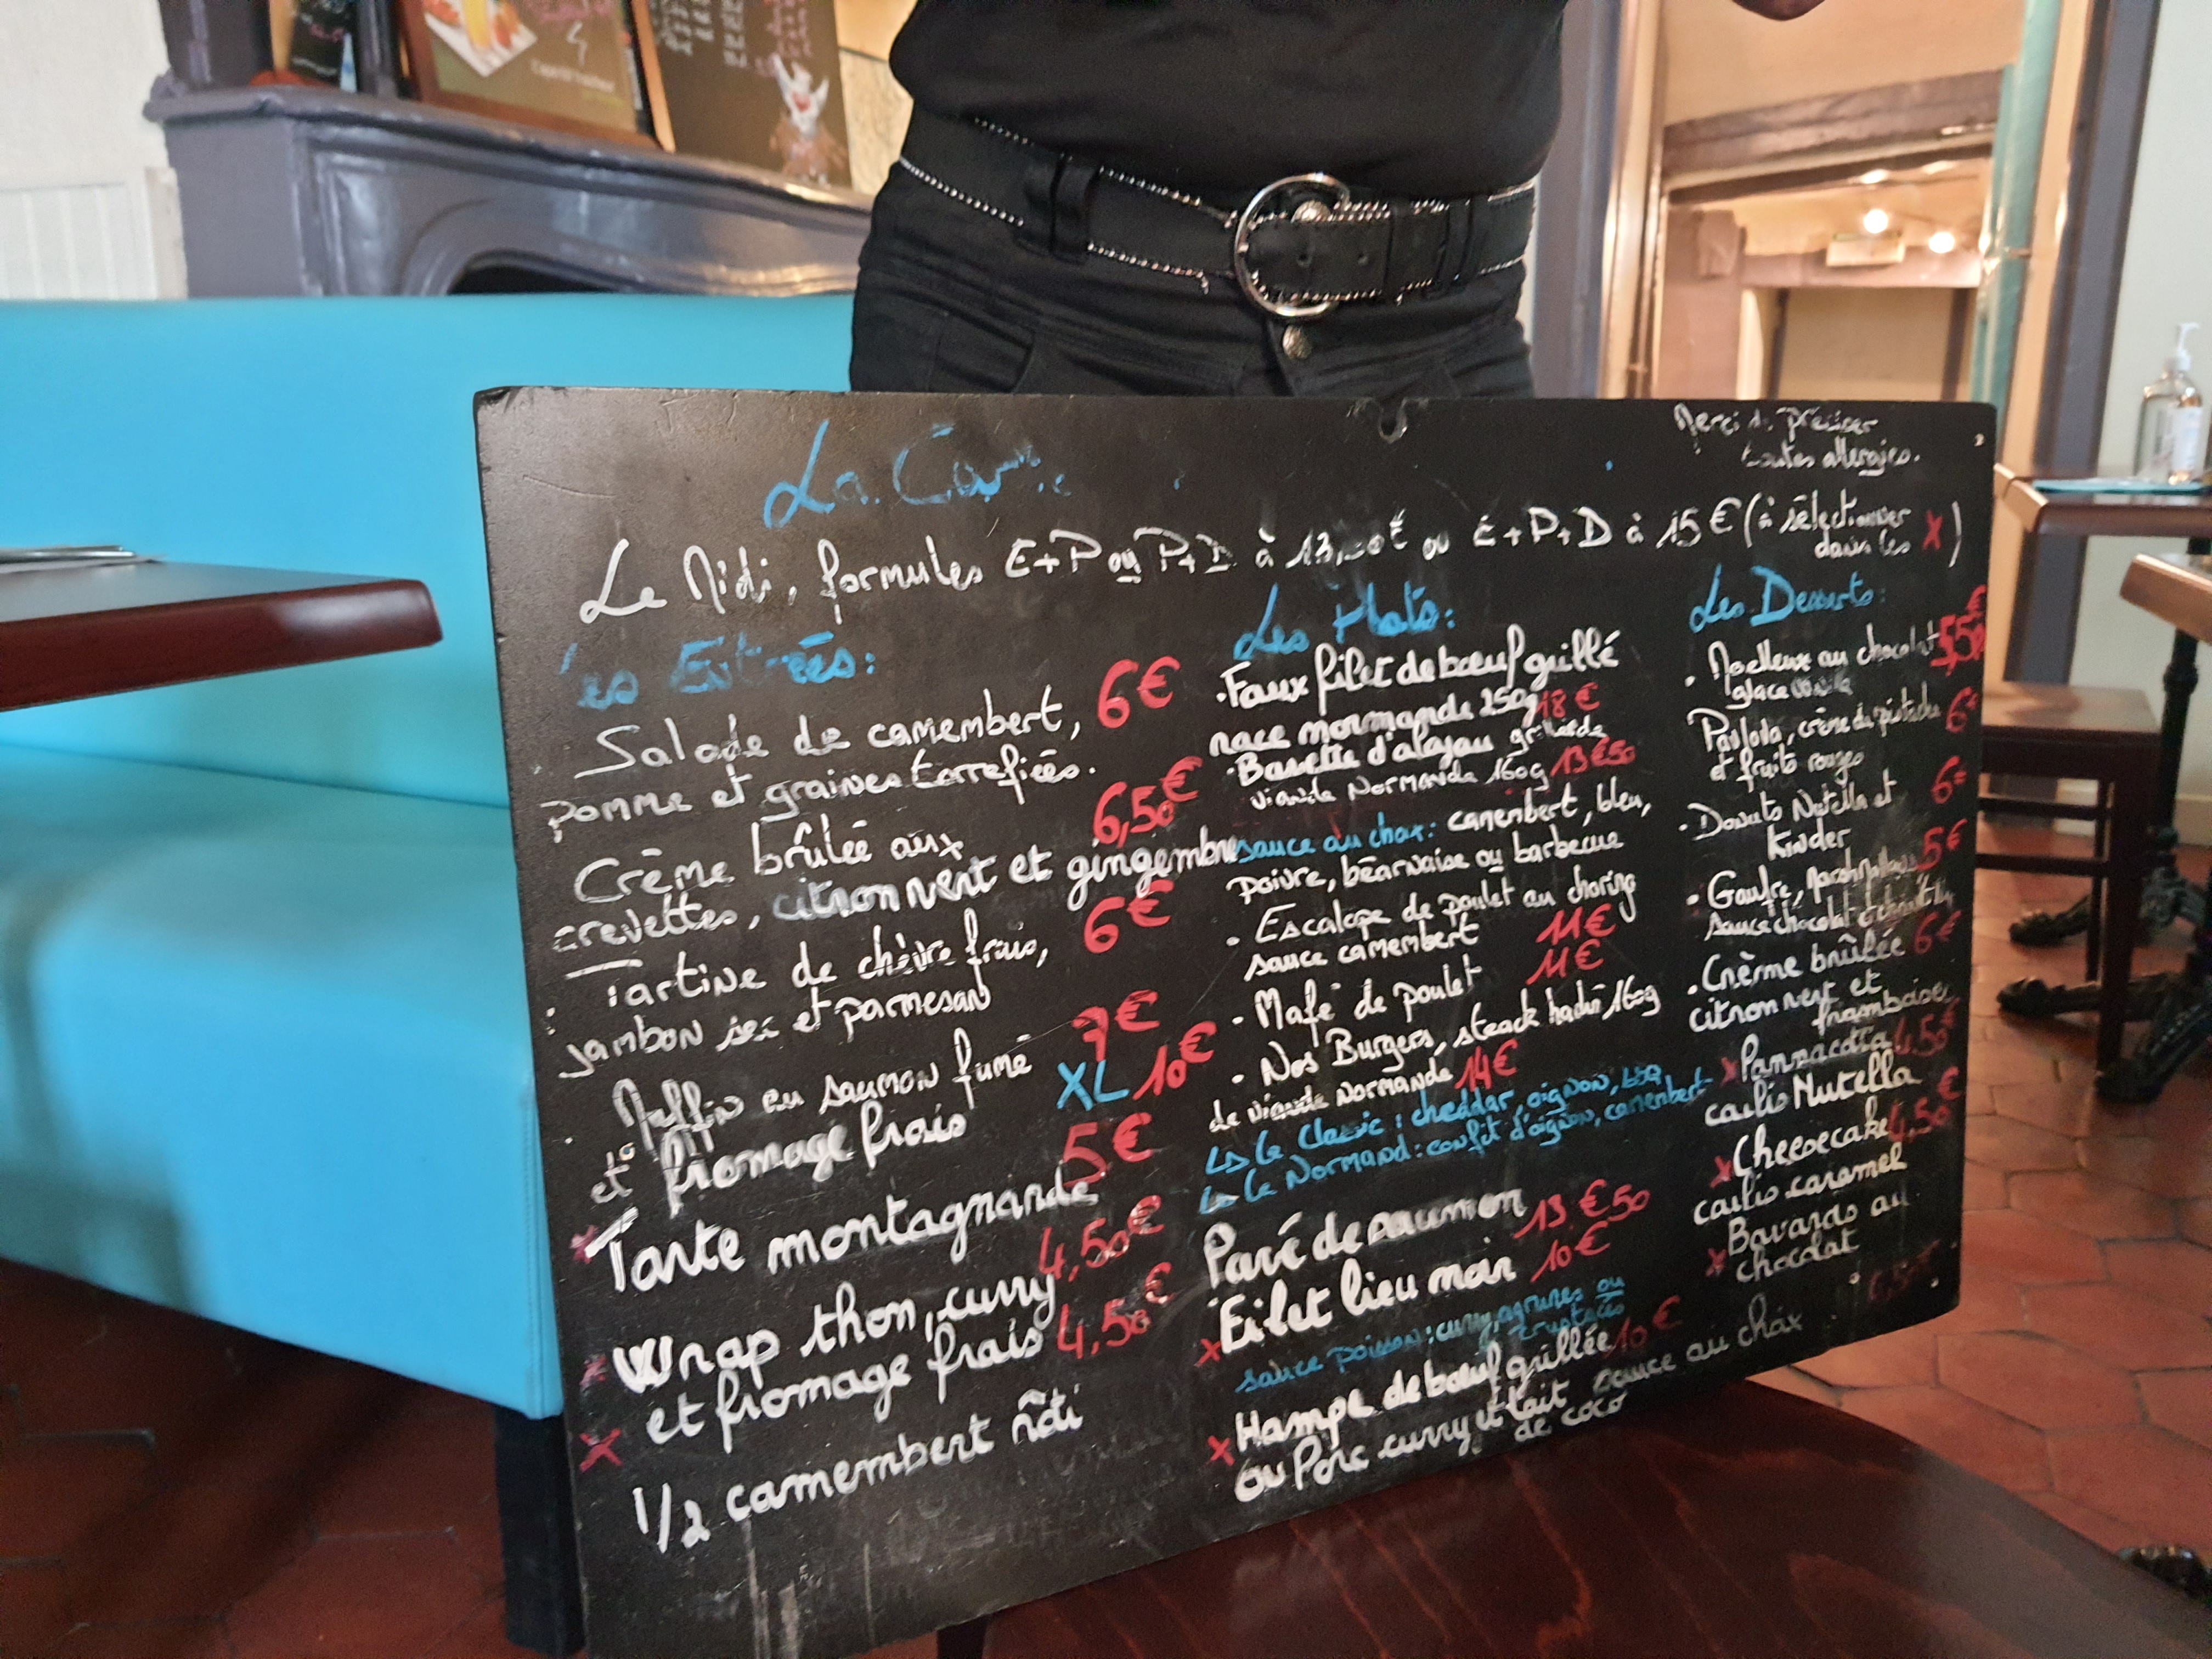 La Carte
Merci de préciser
toutes allergies.
Le Midi, formules E+P ou P+D à 13,50€ ou E+P+D à 15€ (à sélectionner
dans les X)
Les Entrées:
Salade de camembert, 6€
pomme et graines torrefiées.
Crème brûlée aux 6,50€
crevettes, citron vert et gingembre
Tartine de chèvre frais, 6€
jambon sec et parmesan
Muffin au saumon fumé 7€
et fromage frais XL 10€
X Tarte montagnarde 5€
X Wrap thon, curry 4,50€
et fromage frais
X 1/2 camembert rôti 4,50€
Les Plats:
Faux filet de bœuf grillé
race normande 250g 18€
Bavette d'aloyau grillée
viande Normande 160g 13€50
sauce au choix: camembert, bleu,
poivre, béarnaise ou barbecue
Escalope de poulet au chorizo
sauce camembert 11€
Mafé de poulet 11€
Nos Burgers, steack haché 160g
de viande normande 14€
↳ Le Classic: cheddar, oignon, bbq
↳ Le Normand: confit d'oignon, camembert
Pavé de saumon 13€50
X Filet lieu noir 10€
sauce poisson: curry, agrumes ou
crustacés
X Hampe de bœuf grillée 10€ sauce au choix
ou Porc curry et lait
de coco
Les Desserts:
Moelleux au chocolat
glace vanille
Pavlova, crème de pistache 6€
et fruits rouges
Donuts Nutella et 6€
Kinder
Gaufre, marshmallows 5€
sauce chocolat et chantilly
Crème brûlée 6€
citron vert et
framboises
X Pannacotta 4,50€
coulis Nutella
X Cheesecake 4,50€
coulis caramel
X Bavarois au
chocolat